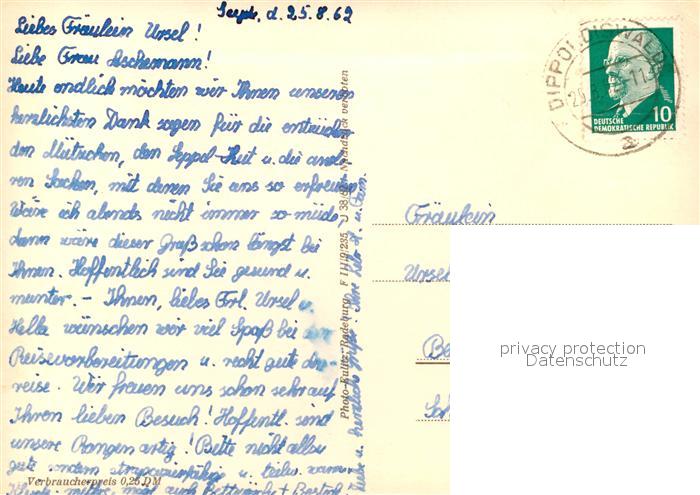 d. 25.8.62
Liebes Fräulein Ursel!
Liebe Frau Aschemann!
Heute endlich möchten wir Ihnen unseren
herzlichsten Dank sagen für die entzücken
den Mützchen, den Seppel-Hut u. die ande
ren Sachen, mit denen Sie uns so erfreuten
Wäre ich abends nicht immer so müde,
dann wäre dieser Gruß schon längst bei
Ihnen. Hoffentlich sind Sie gesund u.
munter. - Ihnen, liebes Frl. Ursel u.
Helle wünschen wir viel Spaß bei den
Reisevorbereitungen u. recht gute An-
reise. Wir freuen uns schon sehr auf
Ihren lieben Besuch! Hoffentl. sind
unsere Rangen artig! Bitte nicht alles
gute sondern strapazierfähig u.
auch Bettwäsche + Besteck
liebe u. herzliche Grüße Ihre
u. Fam.
Verbraucherpreis 0,25 DM
Photo-Kulitz, Radeburg F III/9/235 U 38/62 Nachdruck verboten
DIPPOLDISWALDE
a
10
DEUTSCHE
DEMOKRATISCHE REPUBLIK
Fräulein
Ursel
privacy protection
Datenschutz